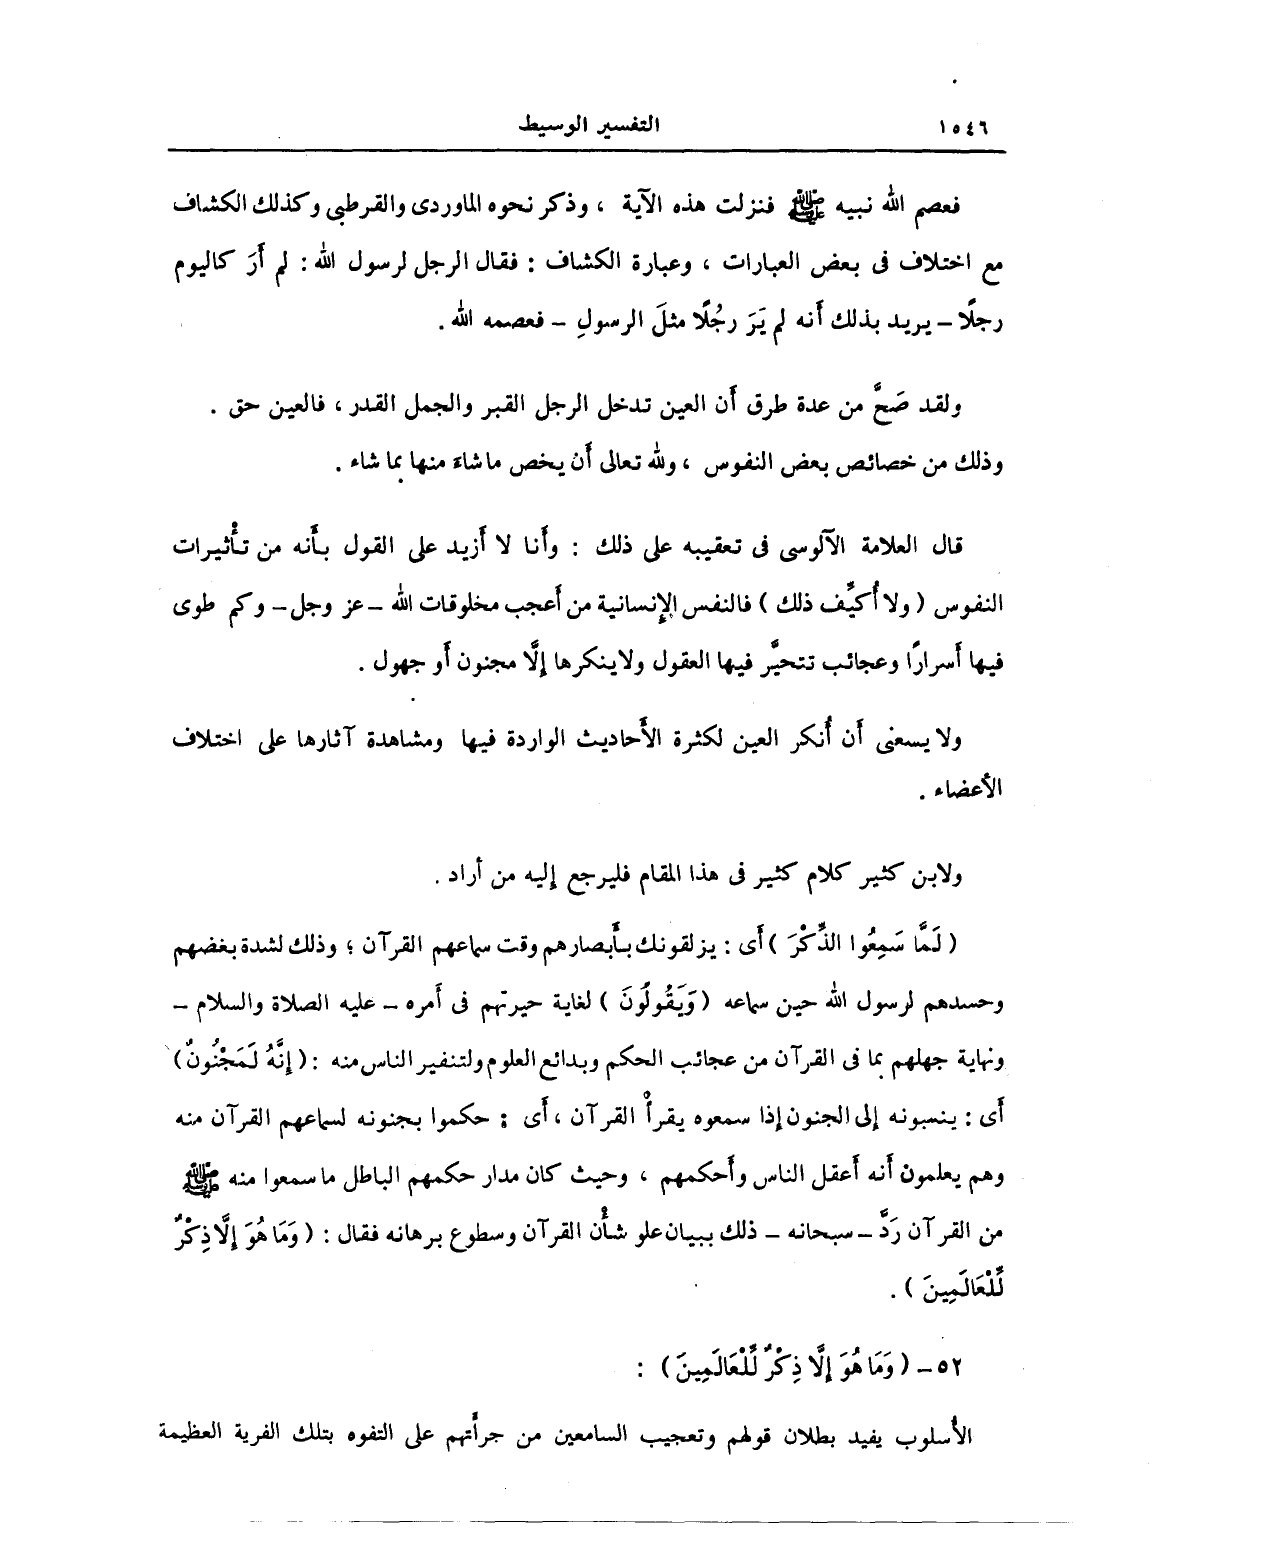 ١٥٤٦ التفسير الوسيط
فعصم الله نبيه ﷺ فنزلت هذه الآية ، وذكر نحوه الماوردى والقرطبى وكذلك الكشاف
مع اختلاف فى بعض العبارات ، وعبارة الكشاف : فقال الرجل لرسول الله : لم أَرَ كاليوم
رجلًا – يريد بذلك أَنه لم يَرَ رجُلًا مثلَ الرسولِ – فعصمه الله .
ولقد صَحَّ من عدة طرق أَن العين تدخل الرجل القبر والجمل القدر ، فالعين حق .
وذلك من خصائص بعض النفوس ، ولله تعالى أَن يخص ماشاءَ منها بما شاء .
قال العلامة الآلوسى فى تعقيبه على ذلك : وأَنا لا أَزيد على القول بأَنه من تأْثيرات
النفوس ( ولا أُكيِّف ذلك ) فالنفس الإنسانية من أَعجب مخلوقات الله – عز وجل – وكم طوى
فيها أَسرارًا وعجائب تتحيَّر فيها العقول ولاينكرها إلَّا مجنون أَو جهول .
ولا يسعنى أَن أُنكر العين لكثرة الأَحاديث الواردة فيها ومشاهدة آثارها على اختلاف
الأَعضاء .
ولابن كثير كلام كثير فى هذا المقام فليرجع إليه من أراد .
( لَمَّا سَمِعُوا الذِّكْرَ ) أَى : يزلقونك بأَبصارهم وقت سماعهم القرآن ؛ وذلك لشدة بغضهم
وحسدهم لرسول الله حين سماعه ( وَيَقُولُونَ ) لغاية حيرتهم فى أَمره – عليه الصلاة والسلام –
ونهاية جهلهم بما فى القرآن من عجائب الحكم وبدائع العلوم ولتنفير الناس منه : ( إِنَّهُ لَمَجْنُونٌ )
أَى : ينسبونه إلى الجنون إذا سمعوه يقرأُ القرآن ، أَى : حكموا بجنونه لسماعهم القرآن منه
وهم يعلمون أَنه أَعقل الناس وأَحكمهم ، وحيث كان مدار حكمهم الباطل ماسمعوا منه ﷺ
من القرآن رَدَّ – سبحانه – ذلك ببيان علو شأْن القرآن وسطوع برهانه فقال : ( وَمَا هُوَ إِلَّا ذِكْرٌ
لِّلْعَالَمِينَ ) .
٥٢ – ( وَمَا هُوَ إِلَّا ذِكْرٌ لِّلْعَالَمِينَ ) :
الأُسلوب يفيد بطلان قولهم وتعجيب السامعين من جرأَتهم على التفوه بتلك الفرية العظيمة